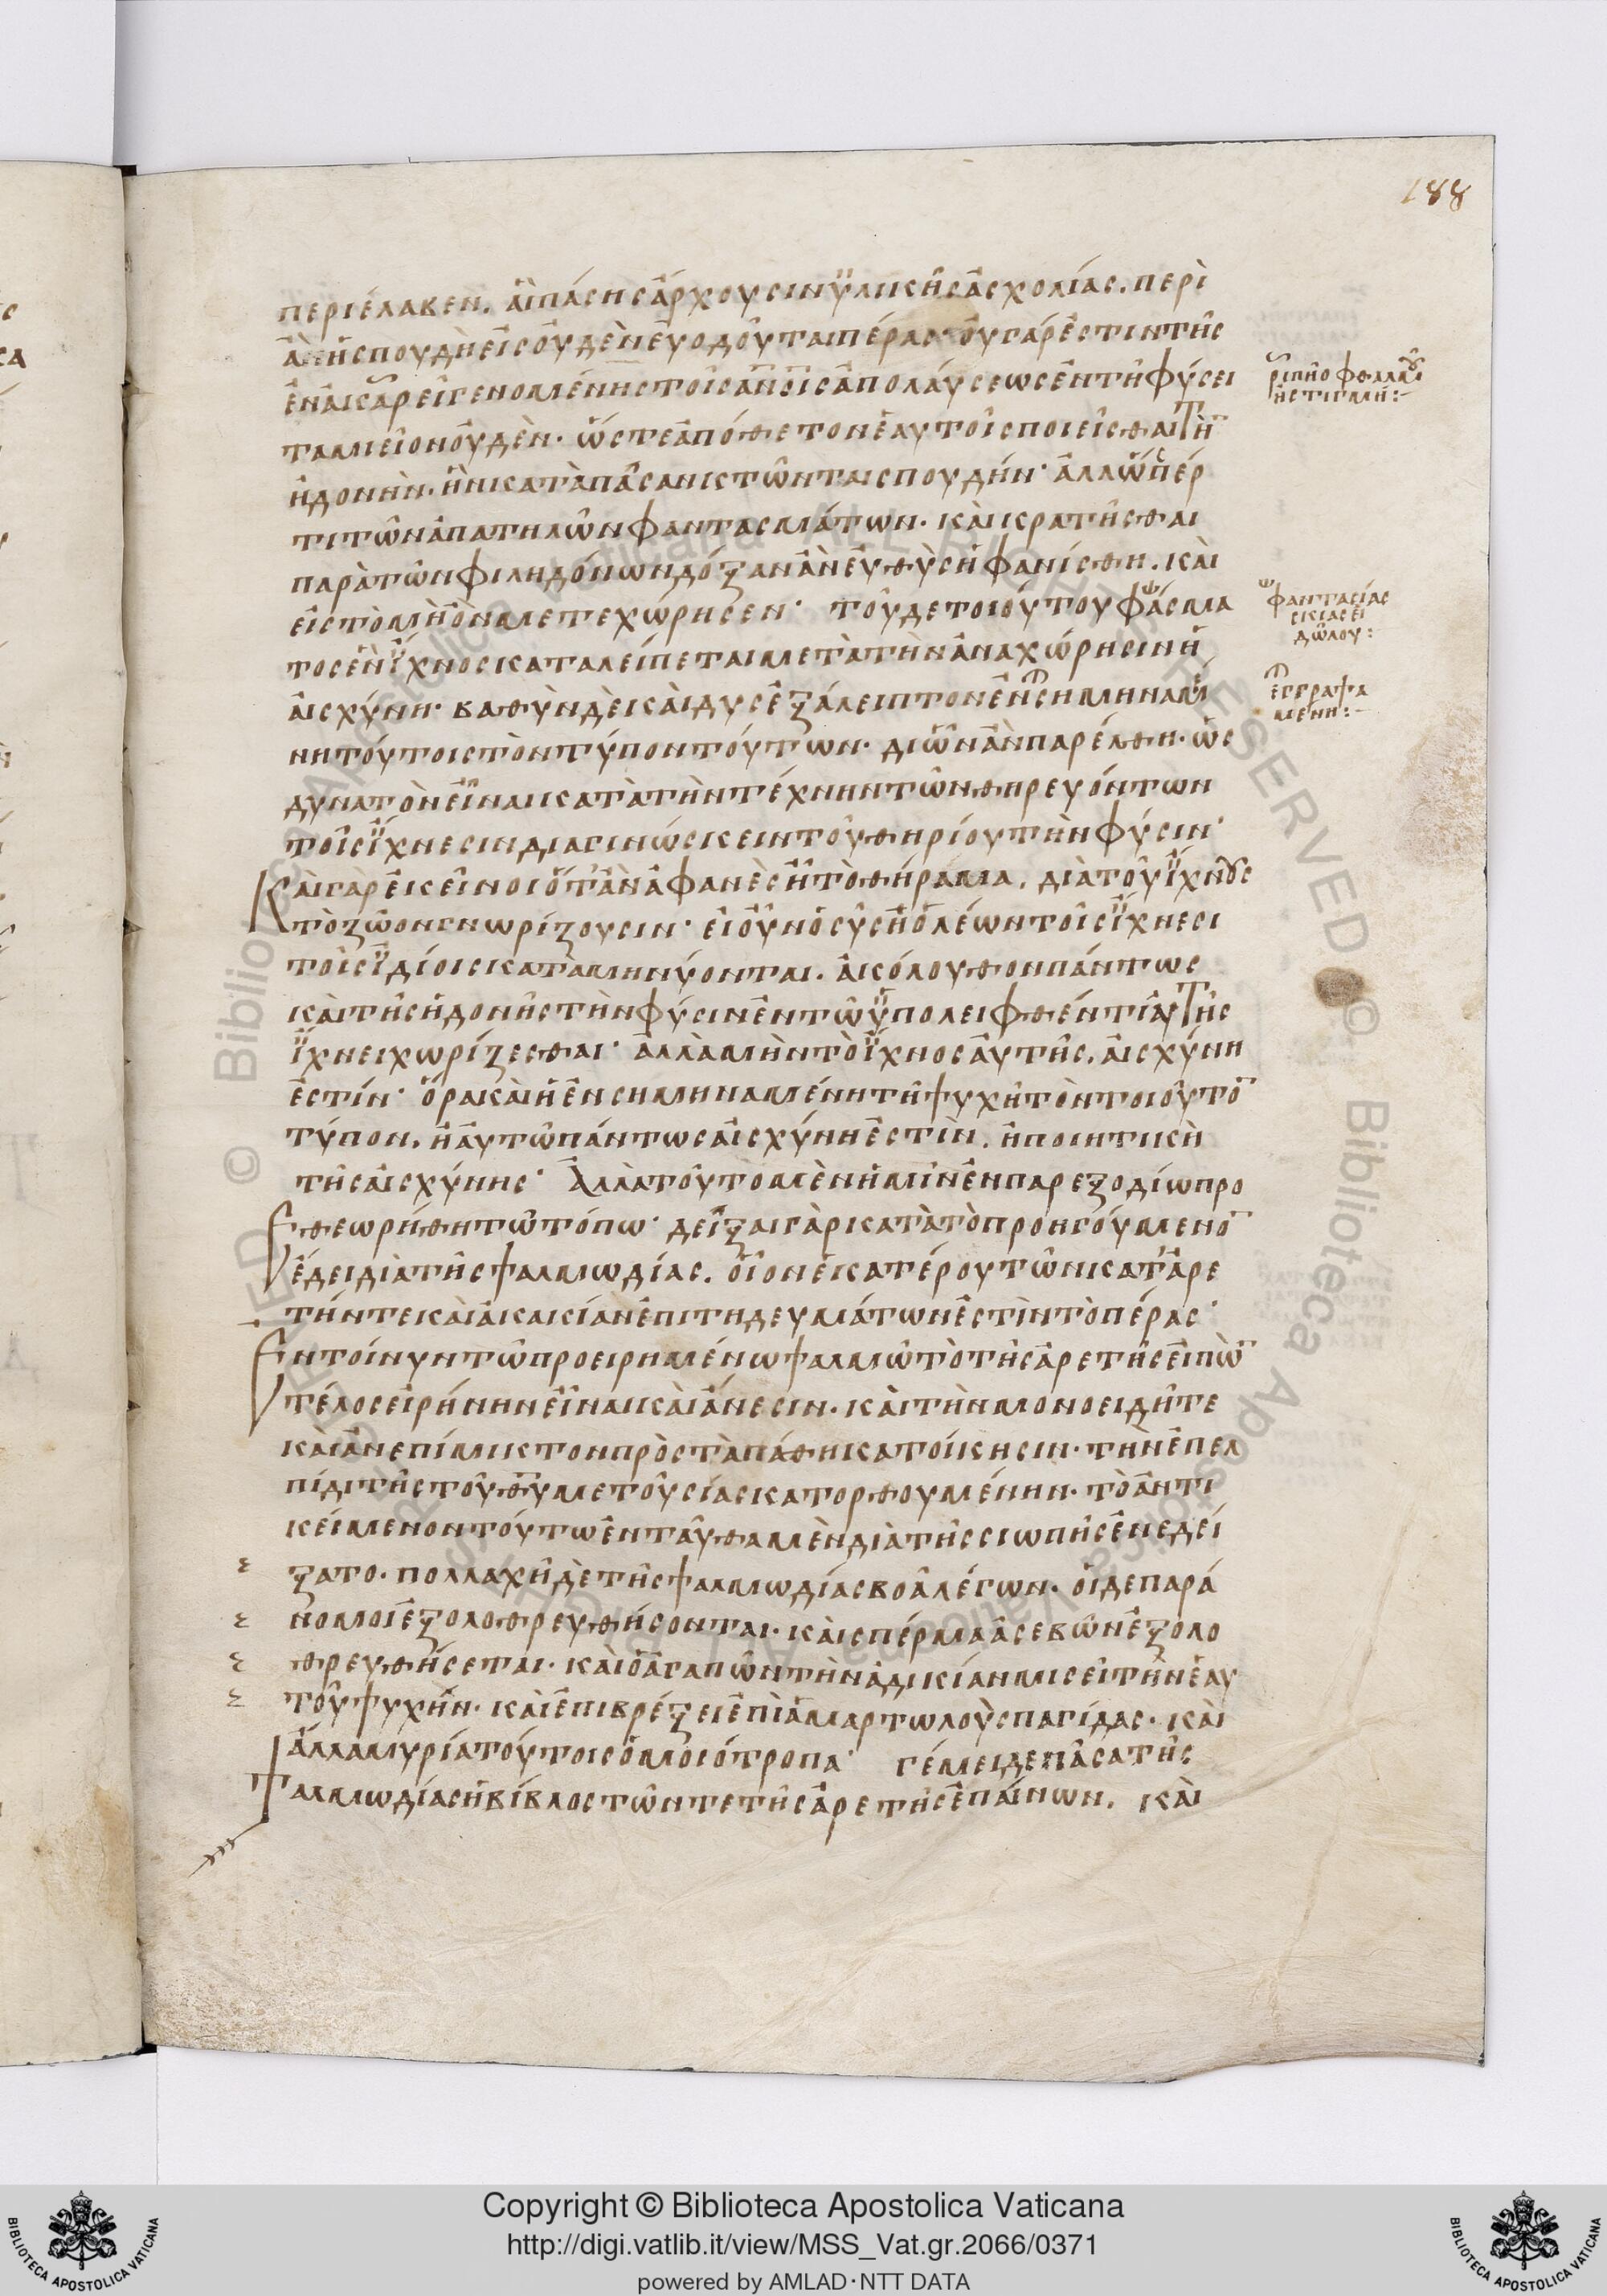 188
περιέλαβεν. αἳ πάσης ἄρχουσιν ὑλικῆς ἀσχολίας. περὶ
ἃ ἡ σπουδὴ εἰς οὐδὲν εὐοδοῦται πέρας· οὐ γάρ ἐστιν τῆς
ἐν ἀκαρεῖ γενομένης τοῖς ἀν̅ο̅ι̅ς ἀπολαύσεως ἐν τῇ φύσει
ταμιεῖον οὐδὲν· ὥστε ἀπόθετον ἑαυτοῖς ποιεῖσθαι τὴ̅
ἡδονὴν. ἣν κατὰ πᾶσαν κτῶνται σπουδήν· ἀλλ ὥσπέρ
τι τῶν ἀπατηλῶν φαντασμάτων. καὶ κρατῆσθαι
παρὰ τῶν φιληδόνων δόξαν ἂν εὐθὺς ἠφανίσθη. καὶ
εἰς τὸ μὴ ὂν μετεχώρησεν· τοῦ δε τοιούτου φάσμα
τος ἓν ἴχνος καταλείπεται μετὰ τὴν ἀναχώρησιν ἡ
αἰσχύνη· βαθὺν δὲ καὶ δυσεξάλειπτον ἐνσημηναμέ
νη τούτοις τὸν τύπον τούτων· δι ὧν ἂν παρέλθη. ὡς
δυνατὸν εἶναι κατὰ τὴν τέχνην τῶν θηρευόντων
τοῖς ἴχνεσιν διαγινώσκειν τοῦ θηρίου τὴν φύσιν·
Καὶ γὰρ ἐκεῖνοι ὅτ' ἂν ἀφανὲς ἦ τὸ θήραμα. διὰ τοῦ ἴχνους
τὸ ζῶον γνωρίζουσιν· εἰ οὖν ὁ σῦς ἢ ὁ λέων τοῖς ἴχνεσι
τοῖς ἰδίοις καταμηνύονται. ἀκόλουθον πάντως
καὶ τῆς ἡδονῆς τὴν φύσιν ἐν τῶ ὑπολειφθέντι αὐτῆς
ἴχνει χωρίζεσθαι· ἀλλὰ μὴν τὸ ἴχνος αὐτῆς. αἰσχύνη
ἐστίν· ὅρα καὶ ἡ ἐνσημηναμένη τῆ ψυχῆ τὸν τοιοῦτο̅
τύπον. ἢ αὐτῶ πάντως αἰσχύνη ἐστὶν. ἢ ποιητικὴ
τῆς αἰσχύνης· Ἀλλὰ τοῦτο μὲν ἡμῖν ἐν παρεξοδίω προ
εθεωρήθη τῶ τόπω· δεῖξαι γὰρ κατὰ τὸ προηγούμενο̅
ἔδει διὰ τῆς ψαλμωδίας. οἷον ἑκατέρου τῶν κατ' ἀρε
τήν τε καὶ κακίαν ἐπιτηδευμάτων ἐστὶν τὸ πέρας·
Ἐν τοίνυν τῶ προειρημένω ψαλμῶ τὸ τῆς ἀρετῆς εἰπὼ̅
τέλος εἰρήνην εἶναι καὶ ἄνεσιν. καὶ τὴν μονοειδῆ τε
καὶ ἀνεπίμικτον πρὸς τὰ πάθη κατοίκησιν. τὴν ἐπελ
πίδι τῆς τοῦ θ̅υ̅ μετουσίας κατορθουμένην. τὸ ἀντι
κείμενον τούτω ἐνταῦθα μὲν διὰ τῆς σιωπῆς ἐνεδεί
ξατο. πολλαχῆ δὲ τῆς ψαλμωδίας βοᾶ λέγων. οἱ δε παρά
νομοι ἐξολοθρευθήσονται. καὶ σπέρμα ἀσεβῶν ἐξολο
θρευθήσεται. καὶ ὁ ἀγαπῶν τὴν ἀδικίαν μισεῖ τὴν ἑαυ
τοῦ ψυχήν. καὶ ἐπιβρέξει ἐπὶ ἁμαρτωλοὺς παγίδας. καὶ
ἄλλα μυρία τούτοις ὁμοιότροπα· γέμει δε πᾶσα τῆς
ψαλμωδίας ἡ βίβλος τῶν τε τῆς ἀρετῆς ἐπαίνων. καὶ
ῥιπῆ ὀφθαλμοῦ
ἢ στιγμῆ:
φαντασίας
σκιας εἰ
δώλου:
ἐγγραψα
μένη:
Copyright © Biblioteca Apostolica Vaticana
http://digi.vatlib.it/view/MSS_Vat.gr.2066/0371
powered by AMLAD·NTT DATA